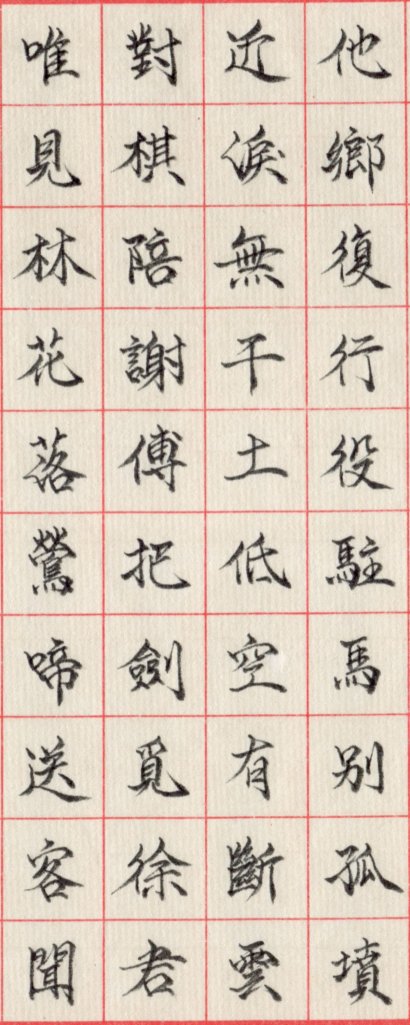 他鄉復行役駐馬別孤墳
近淚無干土低空有斷雲
對棋陪謝傅把劍覓徐君
唯見林花落鶯啼送客聞